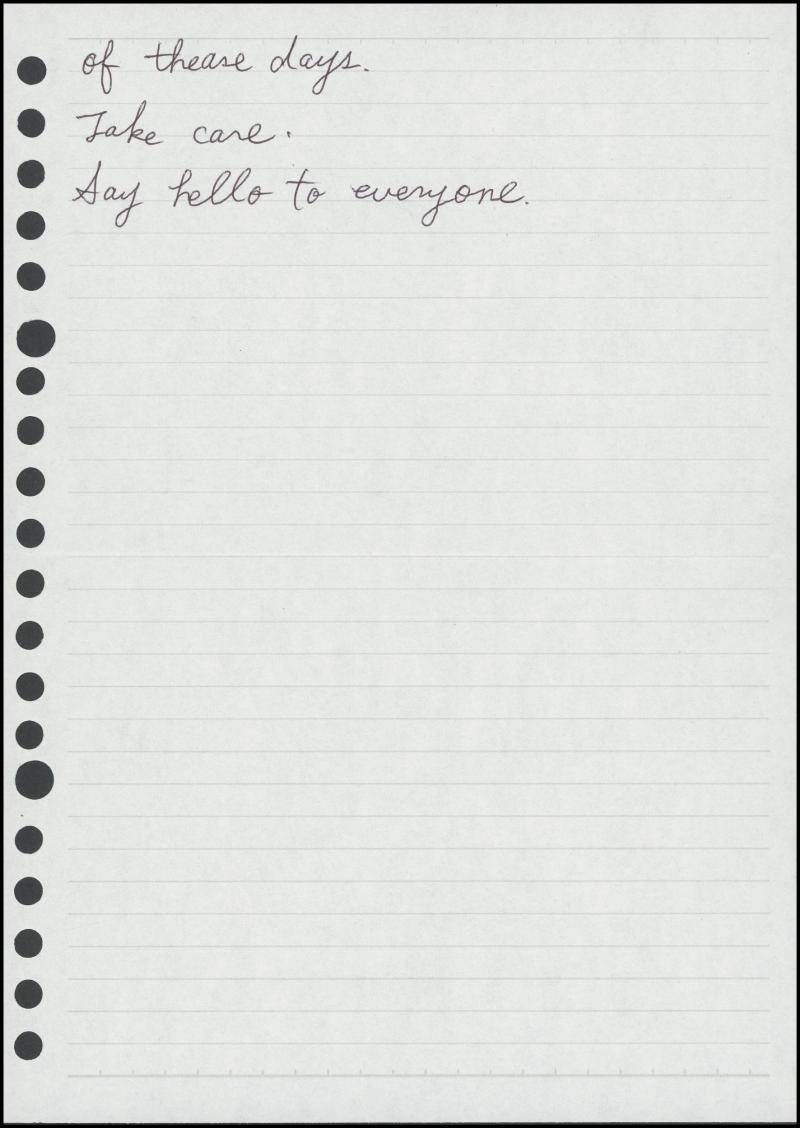 of thease days.
Take care.
Say hello to everyone.